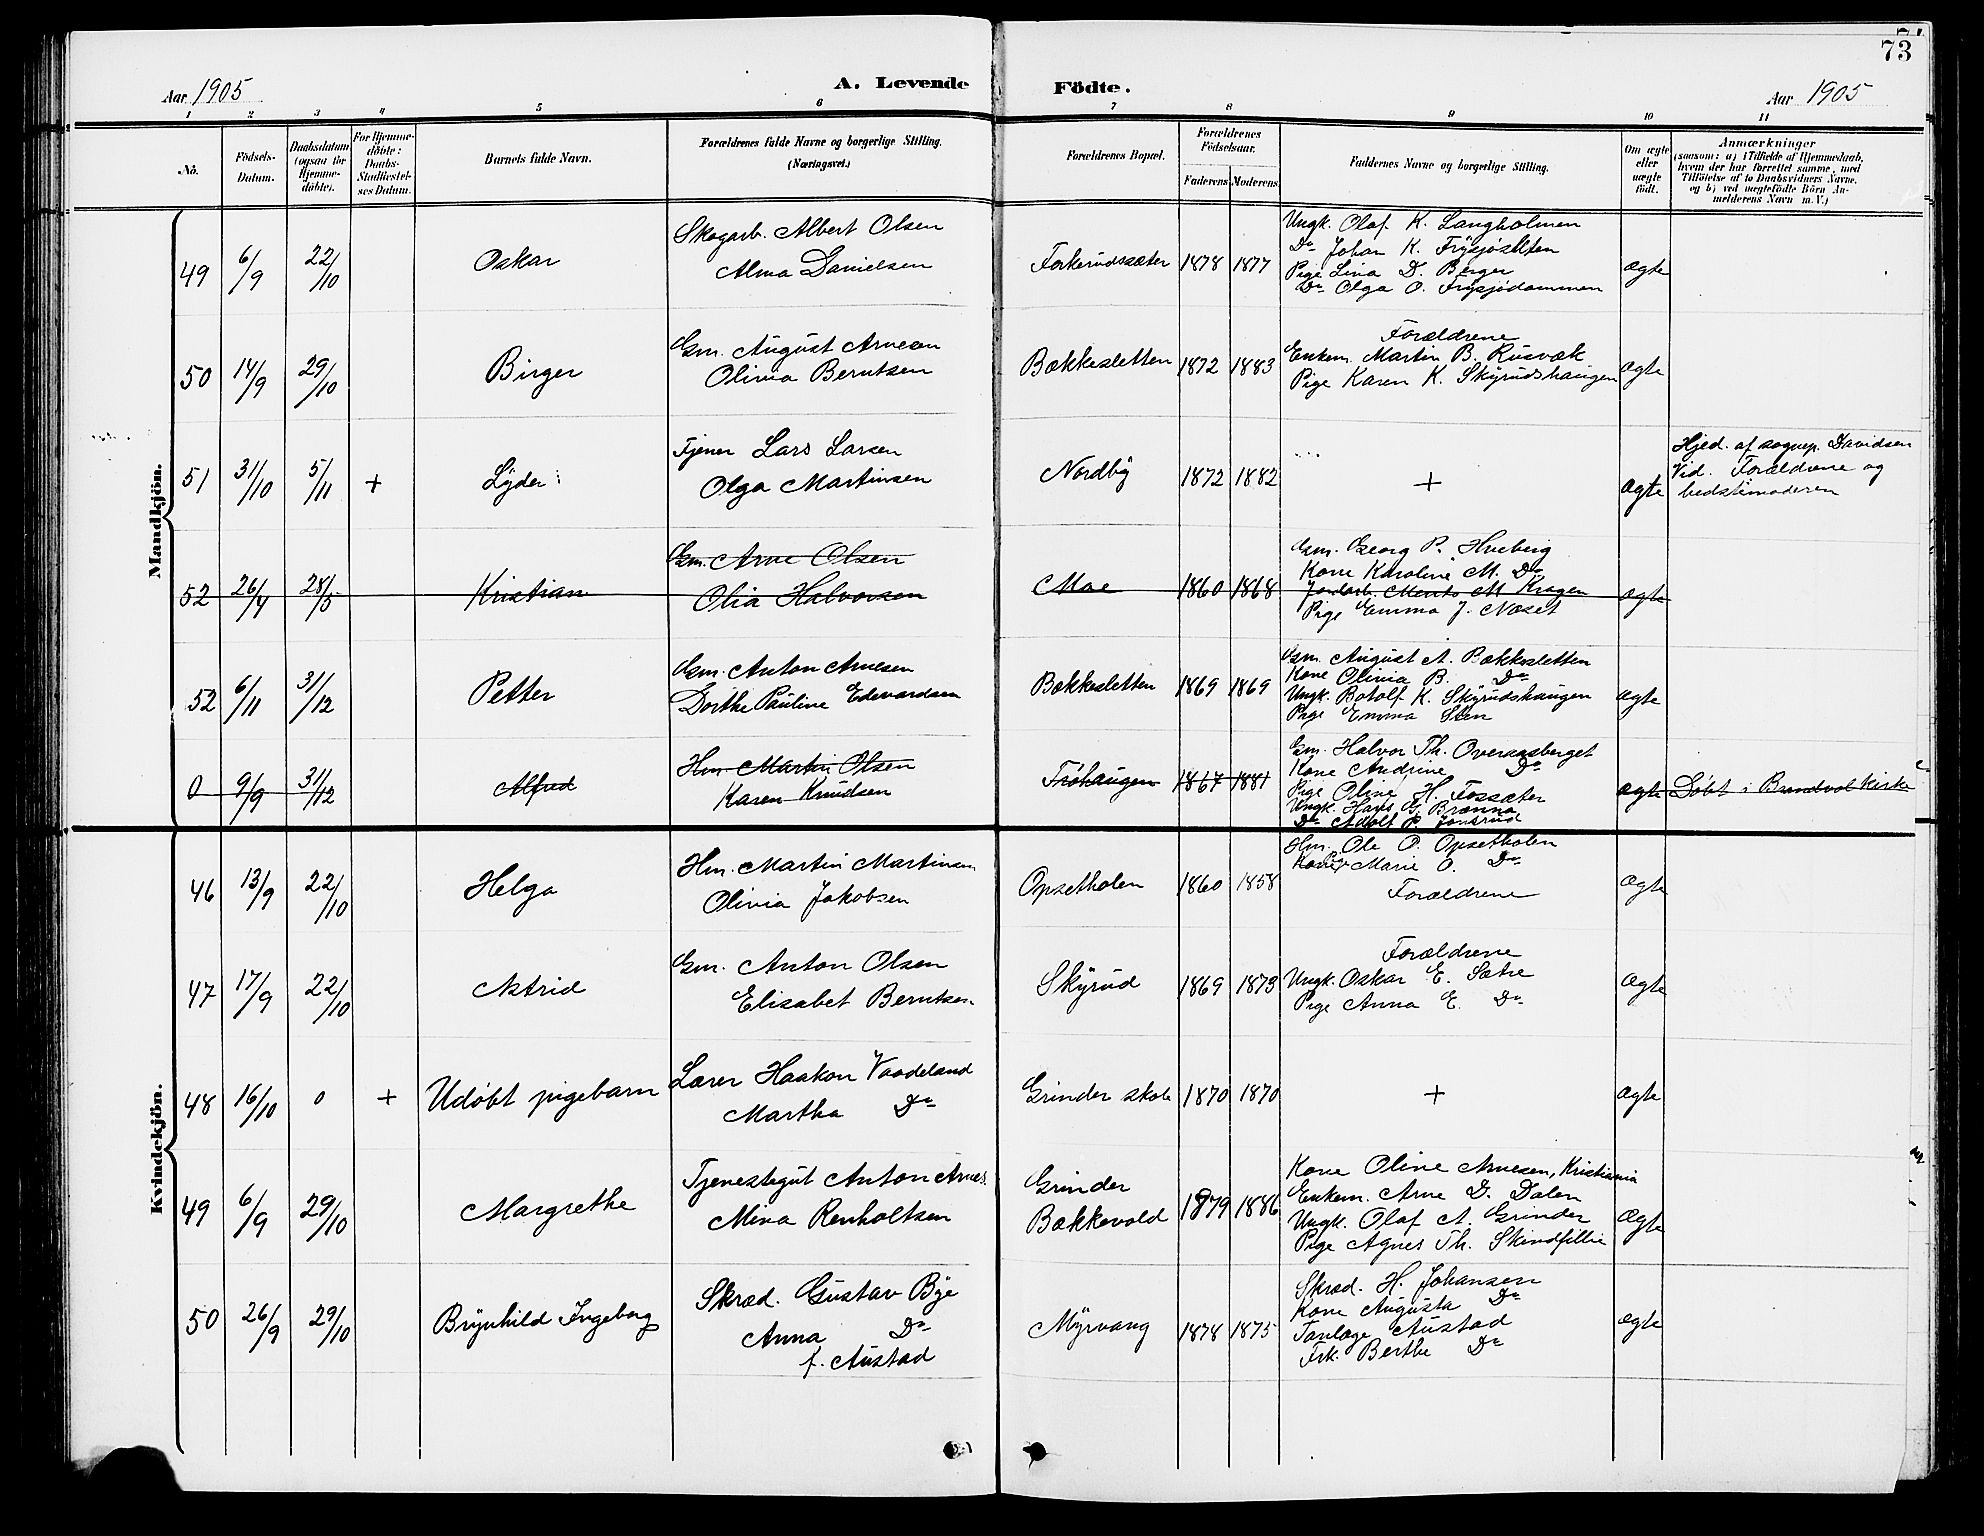 73
Aar 1905
A. Levende Födte.
Aar 1905
1 2 3 4 5 6 7 8 9 10 11
No.
Födsels-Datum.
Daabsdatum (ogsaa for Hjemme-döbte).
For Hjemme-döbte: Daabs-Stadfæstelses Datum.
Barnets fulde Navn.
Forældrenes fulde Navne og borgerlige Stilling. (Næringsvei.)
Forældrenes Bopæl.
Forældrenes Födselsaar.
Faderens Moderens
Faddernes Navne og borgerlige Stilling.
Om ægte eller uægte født.
Anmærkninger
(saasom: a) i Tilfælde af Hjemmedaab, hvem der har forrettet samme, med Tilföielse af to Daabsvidners Navne, og b) ved uægtefödte Börn Anmelderens Navn m. V.)
Mandkjön.
49 6/9 22/10 Oskar
Skogarb. Albert Olsen
Alma Danielsen
Forkerudsæter 1878 1877
Ungk. Olaf K. Langholmen
Do Johan K. Frysjøslutten
Pige Lina D. Berger
Do Olga O. Frysjødammen
ægte
50 14/9 29/10 Birger
Gm. August Arnesen
Olivia Berntsen
Bækkesletten 1872 1883
Forældrene
Enkem. Martin B. Rusvæk
Pige Karen K. Skyrudshaugen
ægte
51 31/10 5/11 + Lyder
Tjener Lars Larsen
Olga Martinsen
Nordby 1872 1882
+
ægte
Hjed. af sognep. Davidsen
Vid. Forældrene og
bedstemoderen
52 26/4 28/5 Kristian
Gm. Arne Olsen
Olia Halvorsen
Moe 1860 1868
Gm. Georg P. Hveberg
Kone Karoline M. Do
M. Kragen
Pige Emma J. Næset
ægte
52 6/11 31/12 Petter
Gm. Anton Arnesen
Dorthe Pauline Edvardsen
Bækkesletten 1869 1869
Gm. August A. Bækkesletten
Kone Olivia B. Do
Ungk. Botolf K. Skyrudshaugen
Pige Emma Sten
ægte
0 9/9 31/12 Alfred
Hm. Martin Olsen
Karen Knudsen
Frøhaugen 1867 1881
Gm. Halvor Th. Overaasberget
Kone Andrine Do
Pige Oline H. Fossæter
Ungk. Hans G. Brænna
Do Adolf P. Jonsrud
ægte
Døbt i Brandval Kirke
Kvindekjön.
46 13/9 22/10 Helga
Hm. Martin Martinsen
Olivia Jakobsen
Opsetholen 1860 1858
Hm. Ole O. Opsetholen
Pige Marie O. Do
Forældrene
ægte
47 17/9 22/10 Astrid
Gm. Anton Olsen
Elisabet Berntsen
Skyrud 1869 1873
Forældrene
Ungk. Oskar E. Sætre
Pige Anna E. Do
ægte
48 16/10 0 + Udøbt pigebarn
Lærer Haakon Vaadeland
Martha Do
Grinder skole 1870 1870
+
ægte
49 6/9 29/10 Margrethe
Tjenestegut Anton Arnes.
Mina Renholtsen
Grinder
Bækkevold
1879 1886
Kone Oline Arnesen, Kristiania
Enkem. Arne D. Dalen
Ungk. Olaf A. Grinder
Pige Agnes Th. Skindfillie
ægte
50 26/9 29/10 Brynhild Ingeborg
Skræd. Gustav Bye
Anna Do
f. Austad
Myrvang 1878 1875
Skræd. H. Johansen
Kone Augusta Do
Tanlæge Austad
Frk. Berthe Do
ægte